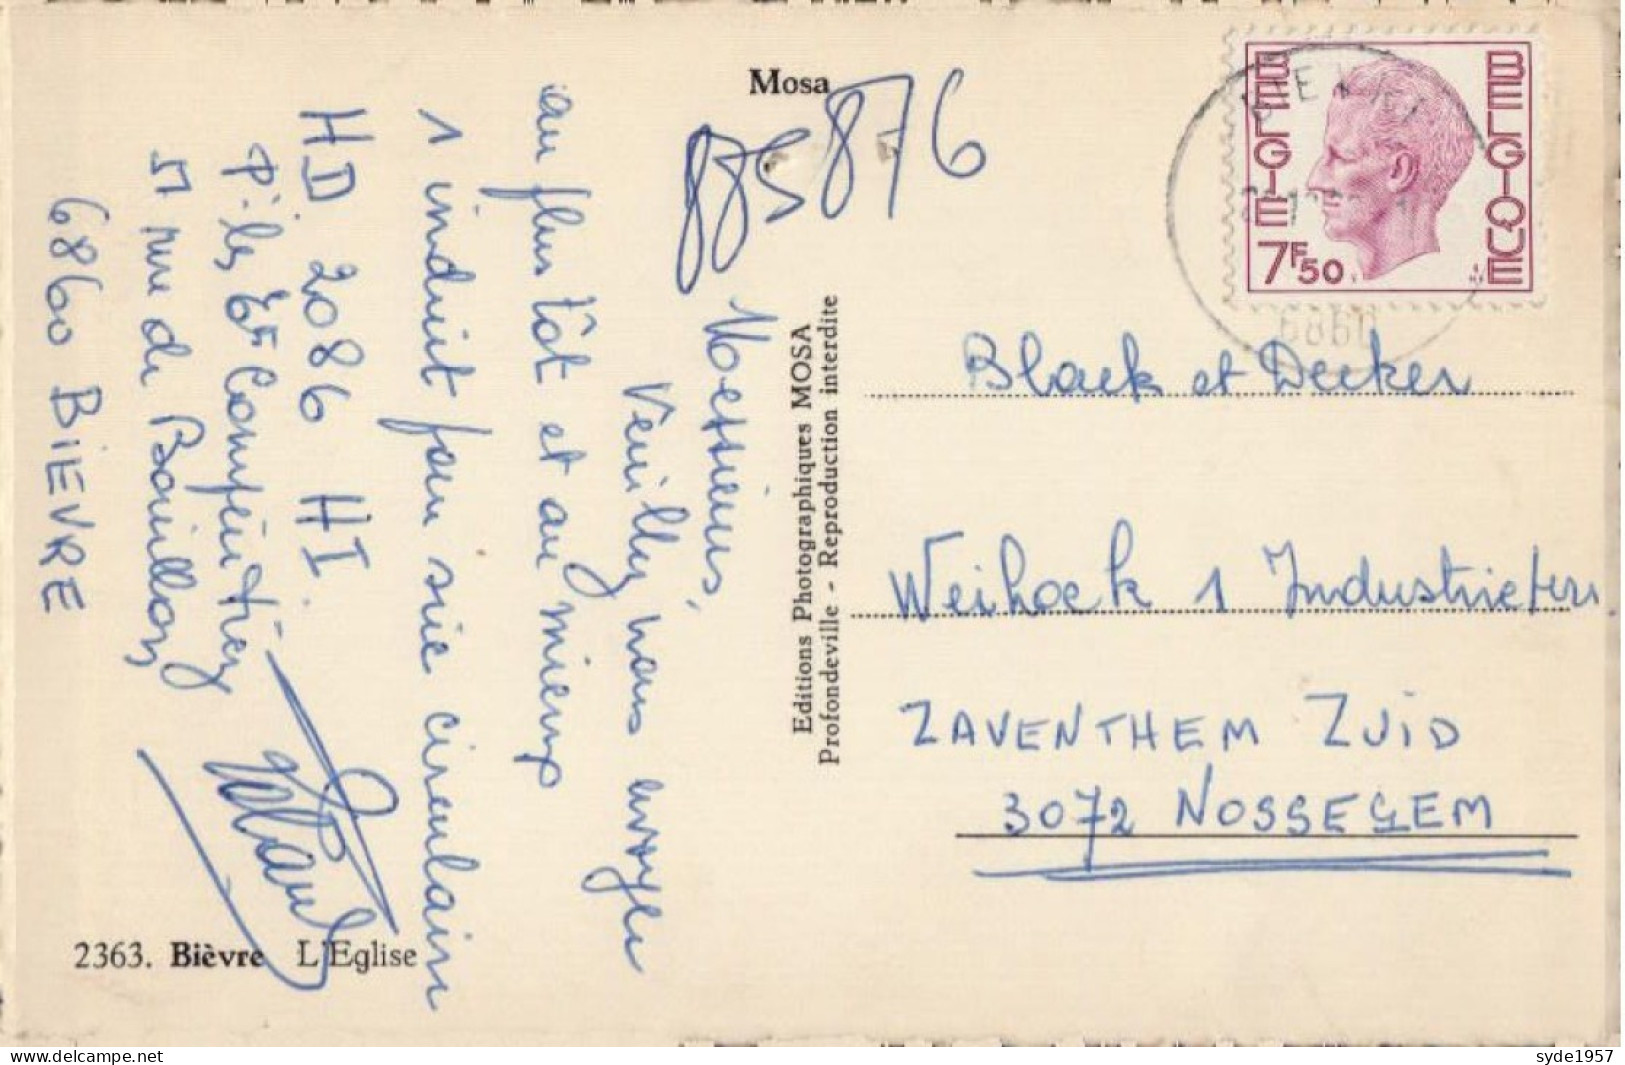 Mosa
885876
Messieurs,
Veuillez nous envoyer
au plus tôt et au mieux
1 induit pour scie circulaire
HD 2086 HI.
P. les Ets
51 rue de Bouillon
6860 BIEVRE
2363. Bièvre L'Eglise
Editions Photographiques MOSA
Profondeville - Reproduction interdite
BELGIE
BELGIQUE
7F50
6860
Black et Decker
Weihoek 1 Industrieter.
ZAVENTHEM ZUID
3072 NOSSEGEM
syde1957